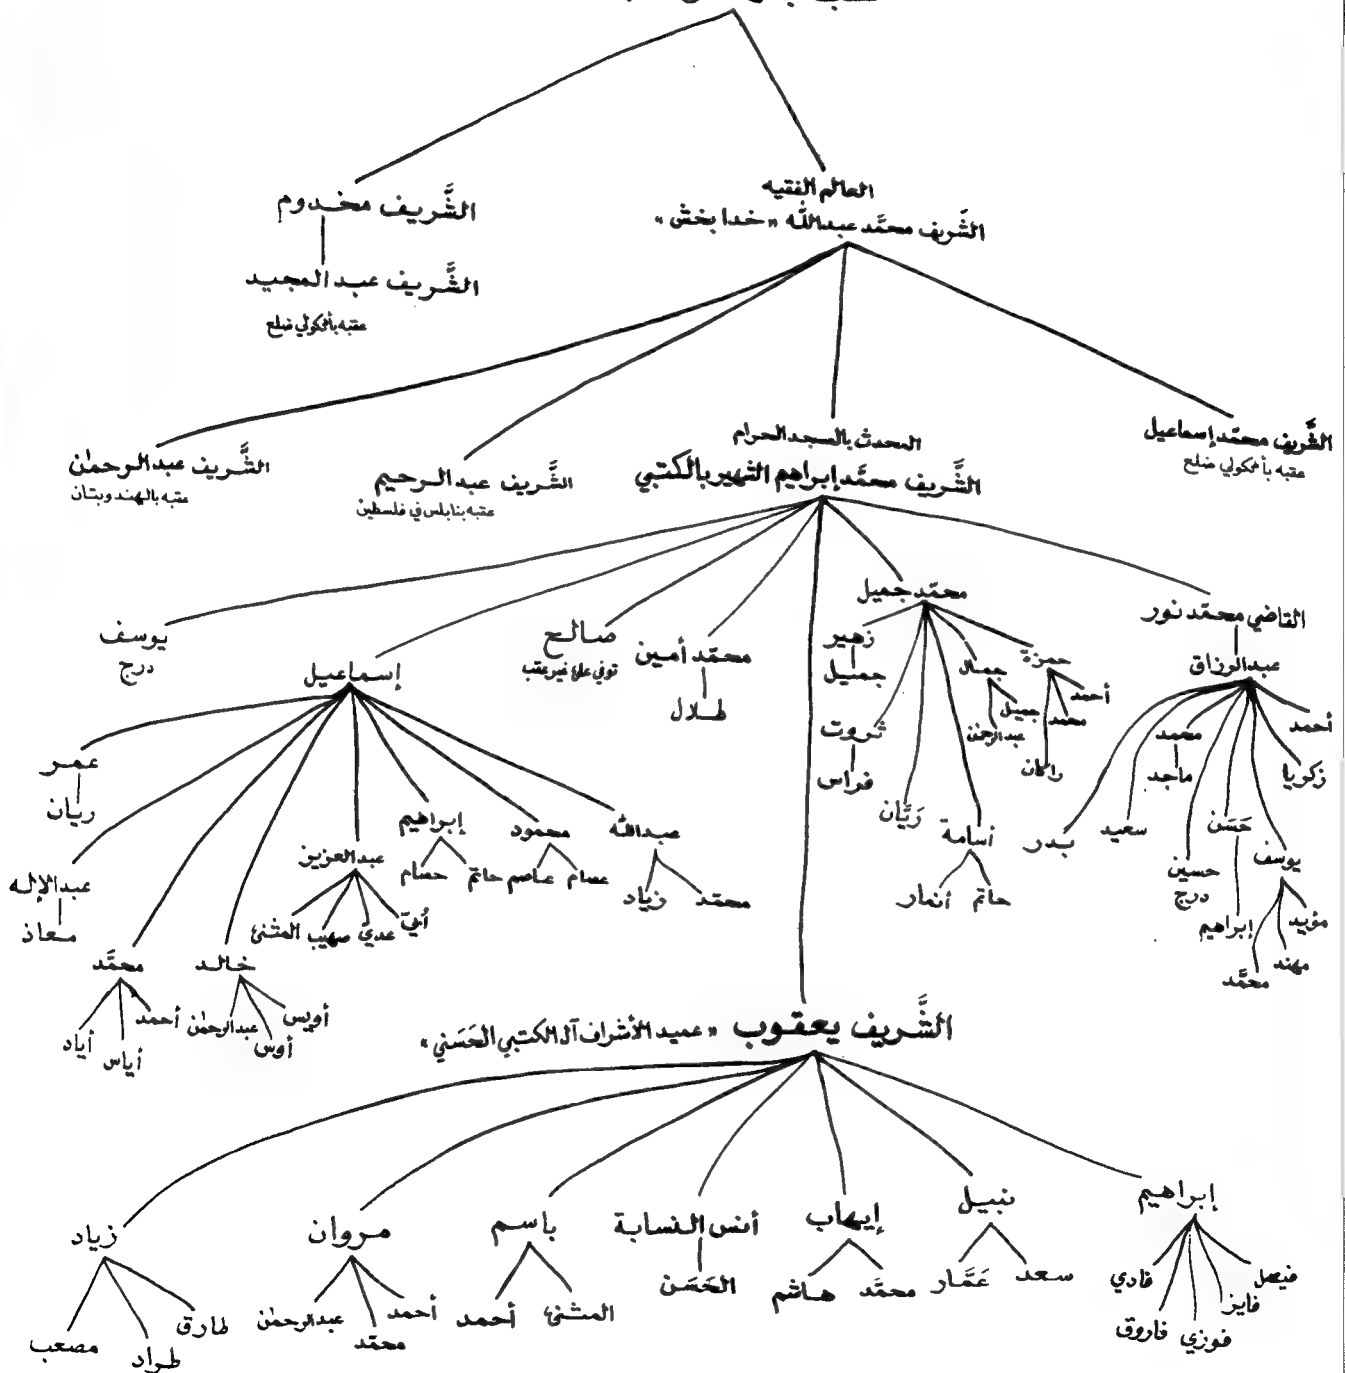 العالم الفقيه
الشَّريف محمَّد عبدالله «خدا بخش»
الشَّريف مخدوم
الشَّريف عبد المجيد
عقبه بأنمكولي ضلع
الشَّريف محمّد إسماعيل
عقبه بأنمكولي ضلع
المحدث بالمسجد الحرام
الشَّريف محمَّد إبراهيم الشهير بالكتبي
الشَّريف عبد الرحيم
عقبه بنابلس في فلسطين
الشَّريف عبد الرحمٰن
عقبه بالهند وبتان
القاضي محمّد نور
عبد الرزاق
أحمد
زكريا
يوسف
مؤيد
مهند
محمَّد
حَسَن
إبراهيم
حسين
درج
محمد
ماجد
سعيد
بدر
محمّد جميل
حمزة
أحمد
محمد
راكان
جمال
جميل
عبدالرحمٰن
أسامة
حاتم
أنمار
رَيَّان
ثروت
فراس
زهير
جميل
محمّد أمين
طلال
صالح
توفي على غير عقب
إسماعيل
عبدالله
محمّد
زياد
محمود
عصام
عاصم
إبراهيم
حاتم
حسام
عبدالعزيز
أُبيّ
عديّ
صهيب
المثنى
خالد
أويس
أوس
عبدالرحمٰن
محمَّد
أحمد
أياس
أياد
عبدالإله
معاذ
عمر
ريان
يوسف
درج
الشَّريف يعقوب «عميد الأشراف آل الكتبي الحَسَني»
إبراهيم
فيصل
فايز
فوزي
فاروق
فادي
نبيل
سعد
عَمَّار
إيهاب
محمَّد
هاشم
أنس النسابة
الحَسَن
باسم
المثنى
أحمد
مروان
أحمد
محمّد
عبدالرحمٰن
زياد
طارق
طراد
مصعب